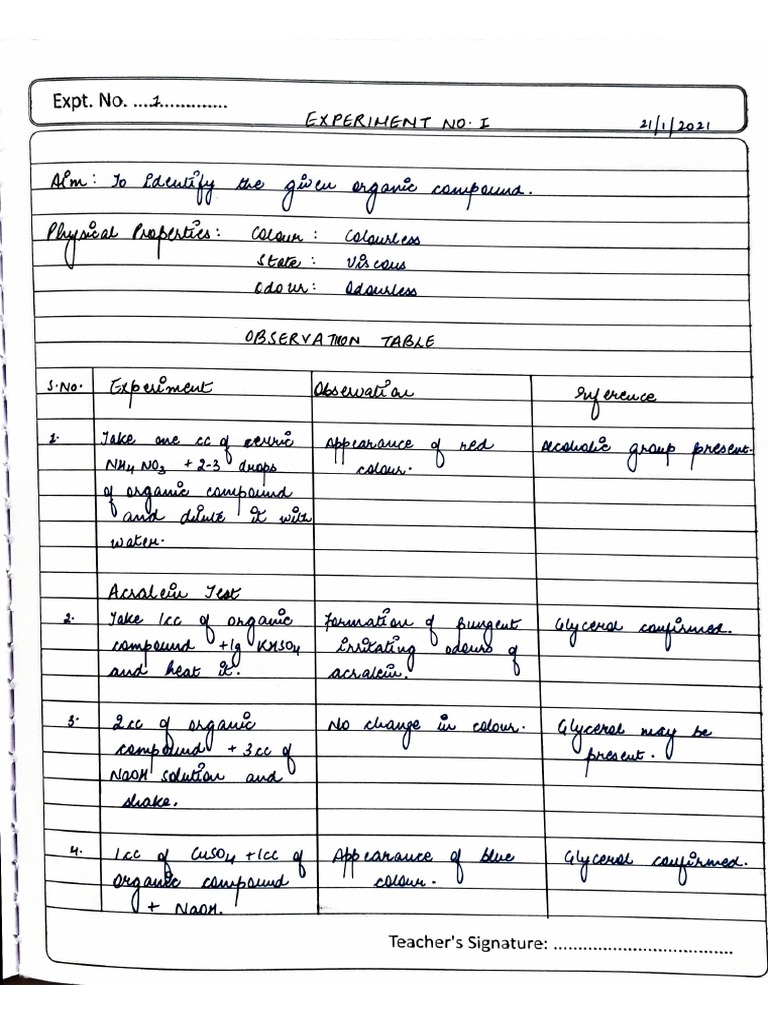 Expt. No. ....1.............
EXPERIMENT NO. I 21/1/2021
Aim: To identify the given organic compound.
Physical Properties: Colour: Colourless
State: Viscous
Odour: Odourless
OBSERVATION TABLE
S.No. Experiment Observation Inference
1. Take one cc of cerric Appearance of red Alcoholic group present.
NH4 NO3 + 2-3 drops colour.
of organic compound
and dilute it with
water.
Acralein Test
2. Take 1cc of organic Formation of pungent Glycerol confirmed.
compound +1g KHSO4 irritating odours of
and heat it. acralein.
3. 2cc of organic No change in colour. Glycerol may be
compound + 3cc of present.
NaOH solution and
shake.
4. 1cc of CuSO4 +1cc of Appearance of blue Glycerol confirmed.
organic compound colour.
+ NaOH.
Teacher's Signature: ....................................